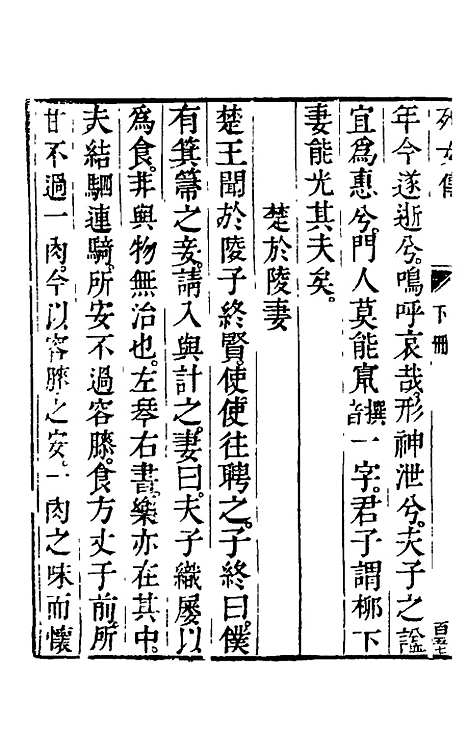 列女傳 下冊 百五七
年今遂逝兮。嗚呼哀哉。形神泄兮。夫子之諡
宜爲惠兮。門人莫能竄音撰一字。君子謂柳下
妻能光其夫矣。
楚於陵妻
楚王聞於陵子終賢。使使往聘之。子終曰。僕
有箕箒之妾。請入與計之。妻曰。夫子織屨以
爲食。非與物無治也。左琴右書。樂亦在其中。
夫結駟連騎。所安不過容膝。食方丈于前。所
甘不過一肉。今以容膝之安。一肉之味而懷